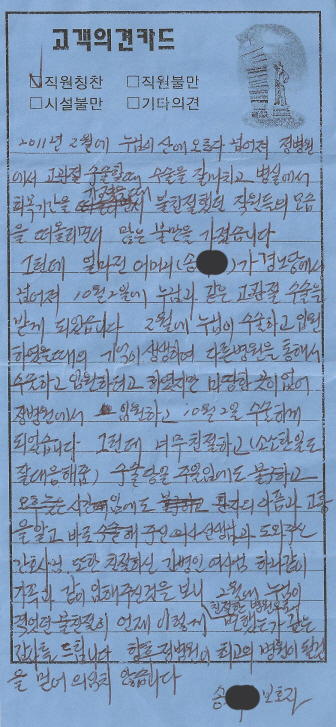 고객의견카드
☑직원칭찬 □직원불만
□시설불만 □기타의견
2011년 2월에 누님이 산에 오르다 넘어져 정병원
에서 고관절 수술할때 수술을 잘마치고 병실에서
회복기간을 가졌을때 불친절했던 직원들의 모습
을 떠올리면서 많은 불만을 가졌습니다
그런데 얼마전 어머니(송 )가 경로당에서
넘어져 10월2일에 누님과 같은 고관절 수술을
받게 되었습니다 2월에 누님이 수술하고 입원
하였을때의 기억이 생생하여 다른병원을 통해서
수술하고 입원하려고 하였지만 마땅한 곳이 없어
정병원에서 입원하고 10월2일 수술하게
되었습니다 그런데 너무친절하고 (소소한일도
잘대응해줌) 수술당일 주말임에도 불구하고
늦은 시간임에도 환자의 아픔과 고통
을 알고 바로 수술해 주신 의사 선생님과 도와주신
간호사분 또한 친절하신 간병인 여사님 하나같이
가족과 같이 대해주신것을 보니 2월에 누님이
겪었던 불친절이 언제 이렇게 친절한 병원으로
감사를 드립니다 향후 정병원이 최고의 병원이 될것
을 믿어 의심치 않습니다
송 보호자